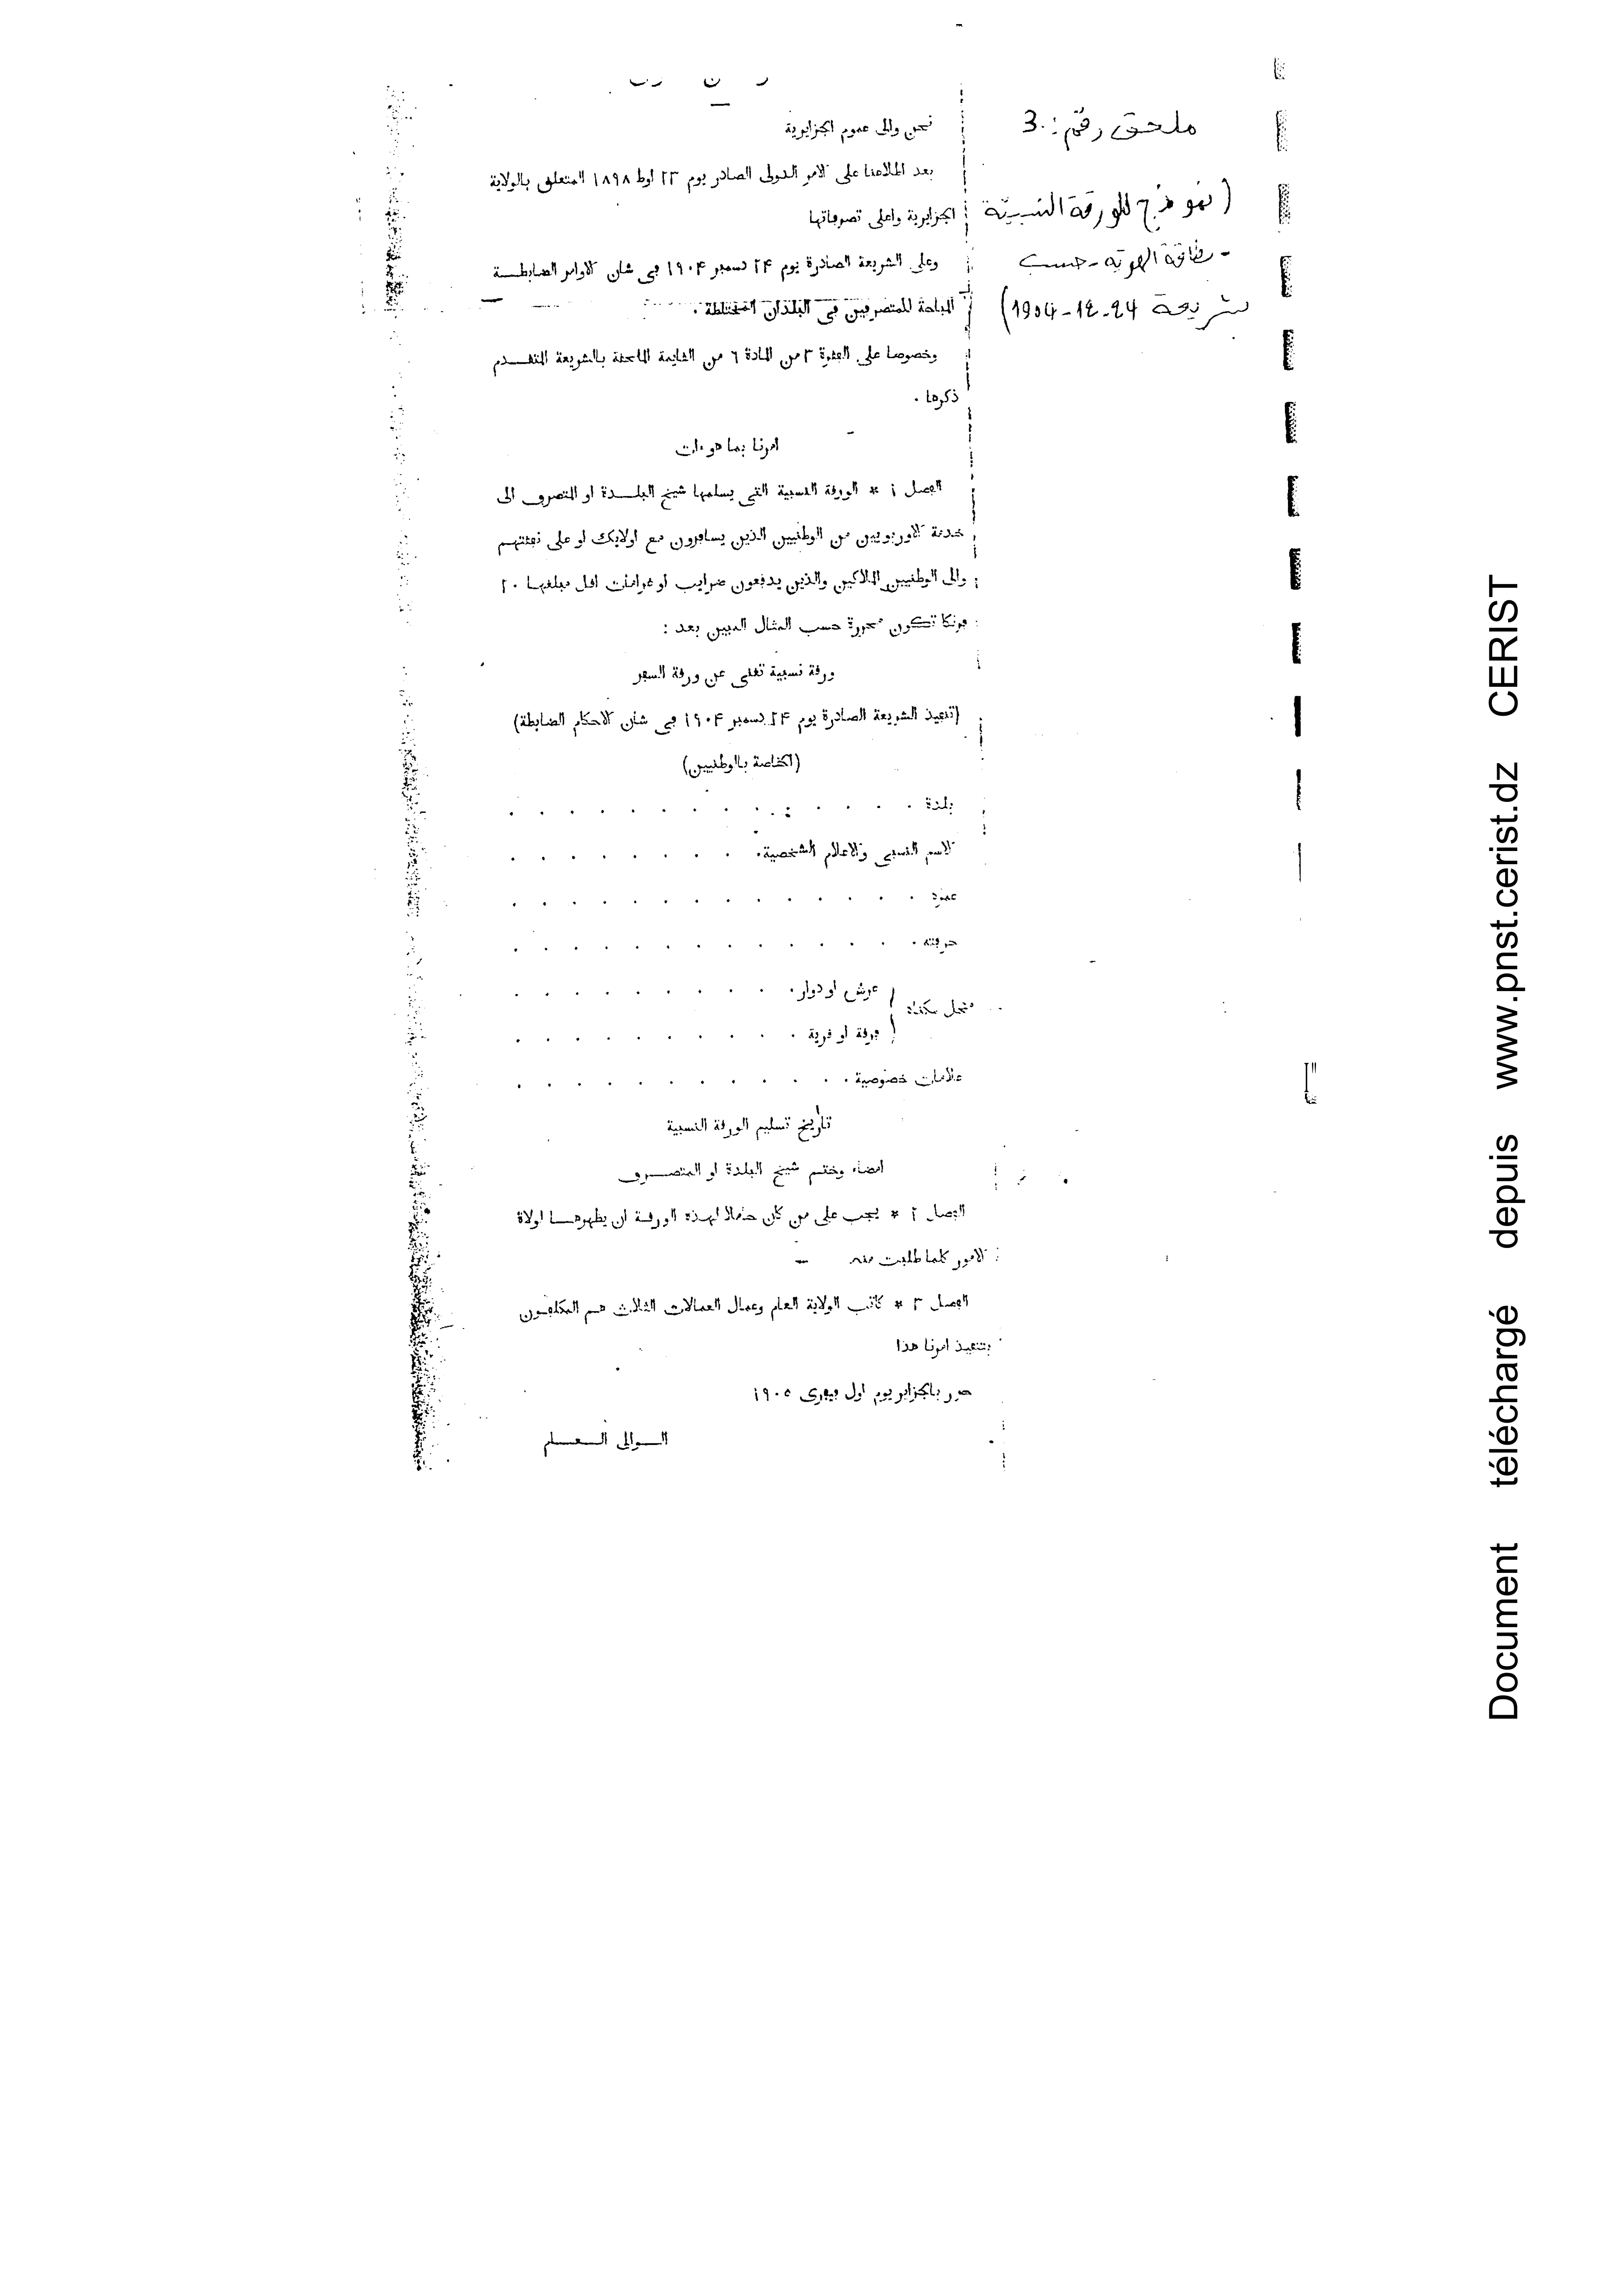 ملحق رقم : 3
( نموذج للورقة النسبية
- بطاقة الهوية - حسب
شريعة 24-12-1904)
نحن والى عموم الجزايرية
بعد اطلاعنا على الامر الدولى الصادر يوم ٢٣ اوط ١٨٩٨ المتعلق بالولاية
الجزايرية واعلى تصرفاتها
وعلى الشريعة الصادرة يوم ٢٤ دسمبر ١٩٠٤ في شان الاوامر الضابطـــة
المباحة للمتصرفين في البلدان المختلطة .
وخصوصا على الفقرة ٣ من المادة ٦ من القايمة الملحقة بالشريعة المتقـــدم
ذكرها .
امرنا بما هو ءات
الفصل ١ * الورقة النسبية التى يسلمها شيخ البلـــدة او المتصرف الى
خدمة الاوربويين من الوطنيين الذين يسافرون مع اولايك او على نفقتهم
والى الوطنيين الملاكين والذين يدفعون ضرايب او غرامات اقل مبلغها ٢٠
فرنكا تكون محررة حسب المثال المبين بعد :
ورقة نسبية تغنى عن ورقة السفر
(تنفيذ الشريعة الصادرة يوم ٢٤ دسمبر ١٩٠٤ في شان الاحكام الضابطة)
(الخاصة بالوطنيين)
بلدة . . . . . . . . . . . . . .
الاسم النسبى والاعلام الشخصية. . . . . . . . .
عمره . . . . . . . . . . . . . .
حرفته . . . . . . . . . . . . . .
محل سكناه ( عرش او دوار. . . . . . . . . .
( فرقة او قرية . . . . . . . . . .
علامات خصوصية . . . . . . . . . . . .
تاريخ تسليم الورقة النسبية
امضاء وختم شيخ البلدة او المتصـــرف
الفصل ٢ * يجب على من كان حاملا لهذه الورقة ان يظهرهـــا لولاة
الامور كلما طلبت منه
الفصل ٣ * كاتب الولاية العام وعمال العمالات الثلاث هم المكلفون
بتنفيذ امرنا هذا
حرر بالجزاير يوم اول فيفرى ١٩٠٥
الـــوالى العـــام
Document téléchargé depuis www.pnst.cerist.dz CERIST